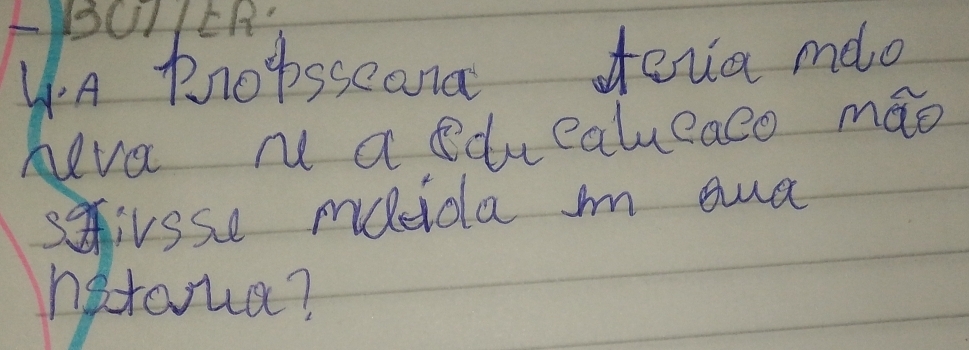 - BUTTER.
4.A Profsseora teria mdo
neva ne a educalucaco mão
stivsse mdeida em oua
hstorua?